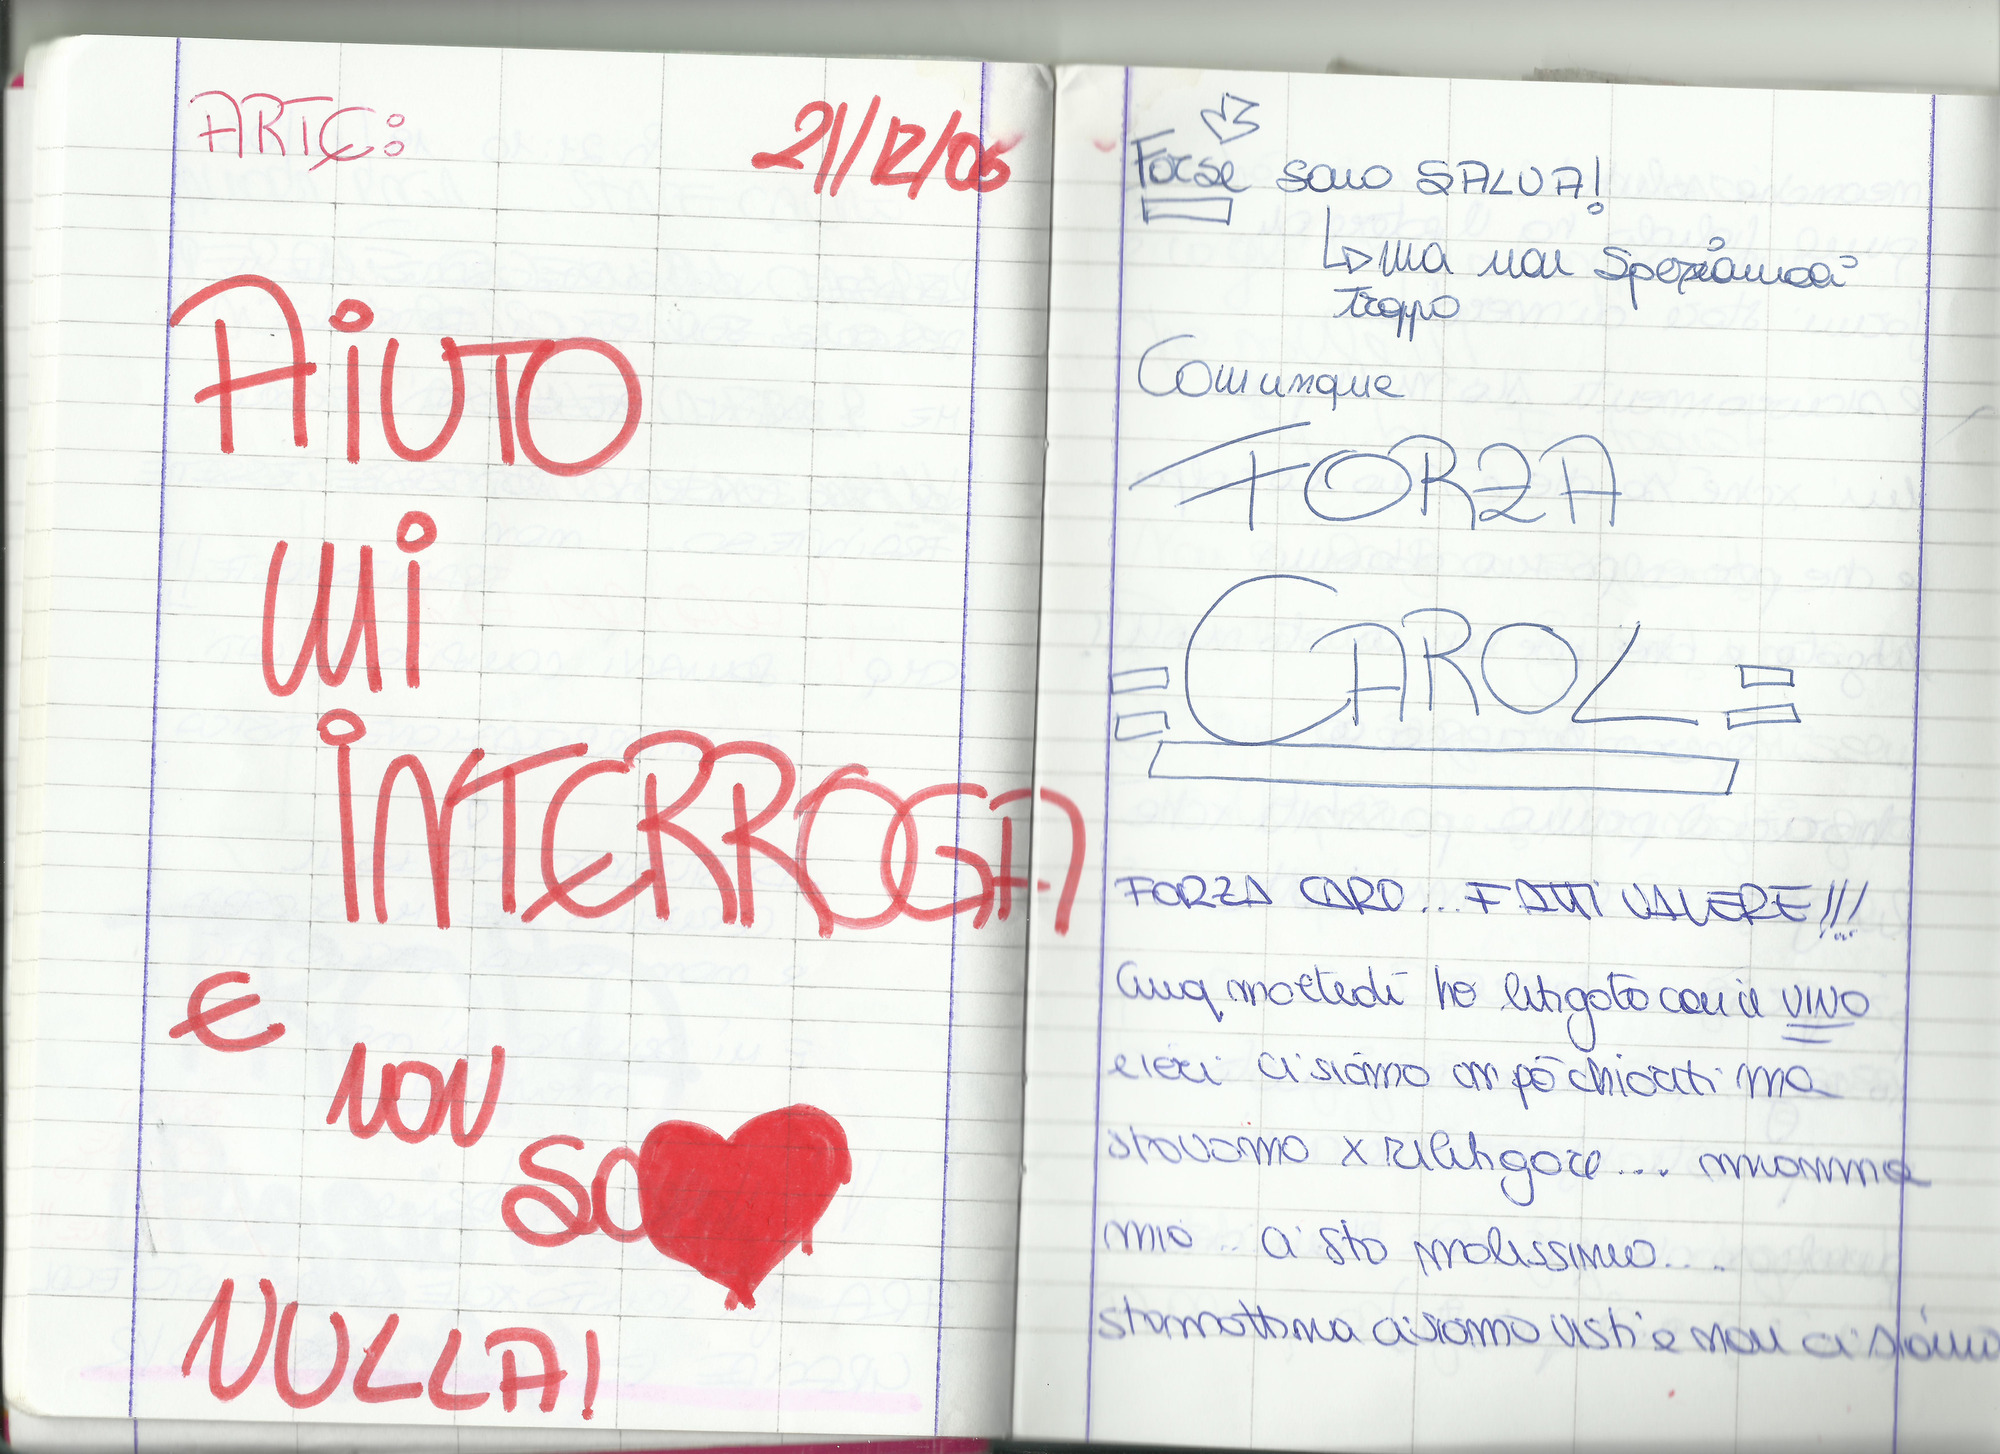 ARTE:
21/12/06
AiUTO
Mi
iNTERROGA
E
NON
SO
NULLA!
Forse sono SALVA!
ma non speriamoci
troppo
Comunque
FORZA
= CAROL =
FORZA CARO... FATTI VALERE!!!
Cmq martedì ho litigato con il VINO
e ieri ci siamo un pò chiariti ma
stavamo x rilitigare... mamma
mia.. ci sto malissimo....
stamattina ci siamo visti e non ci siamo